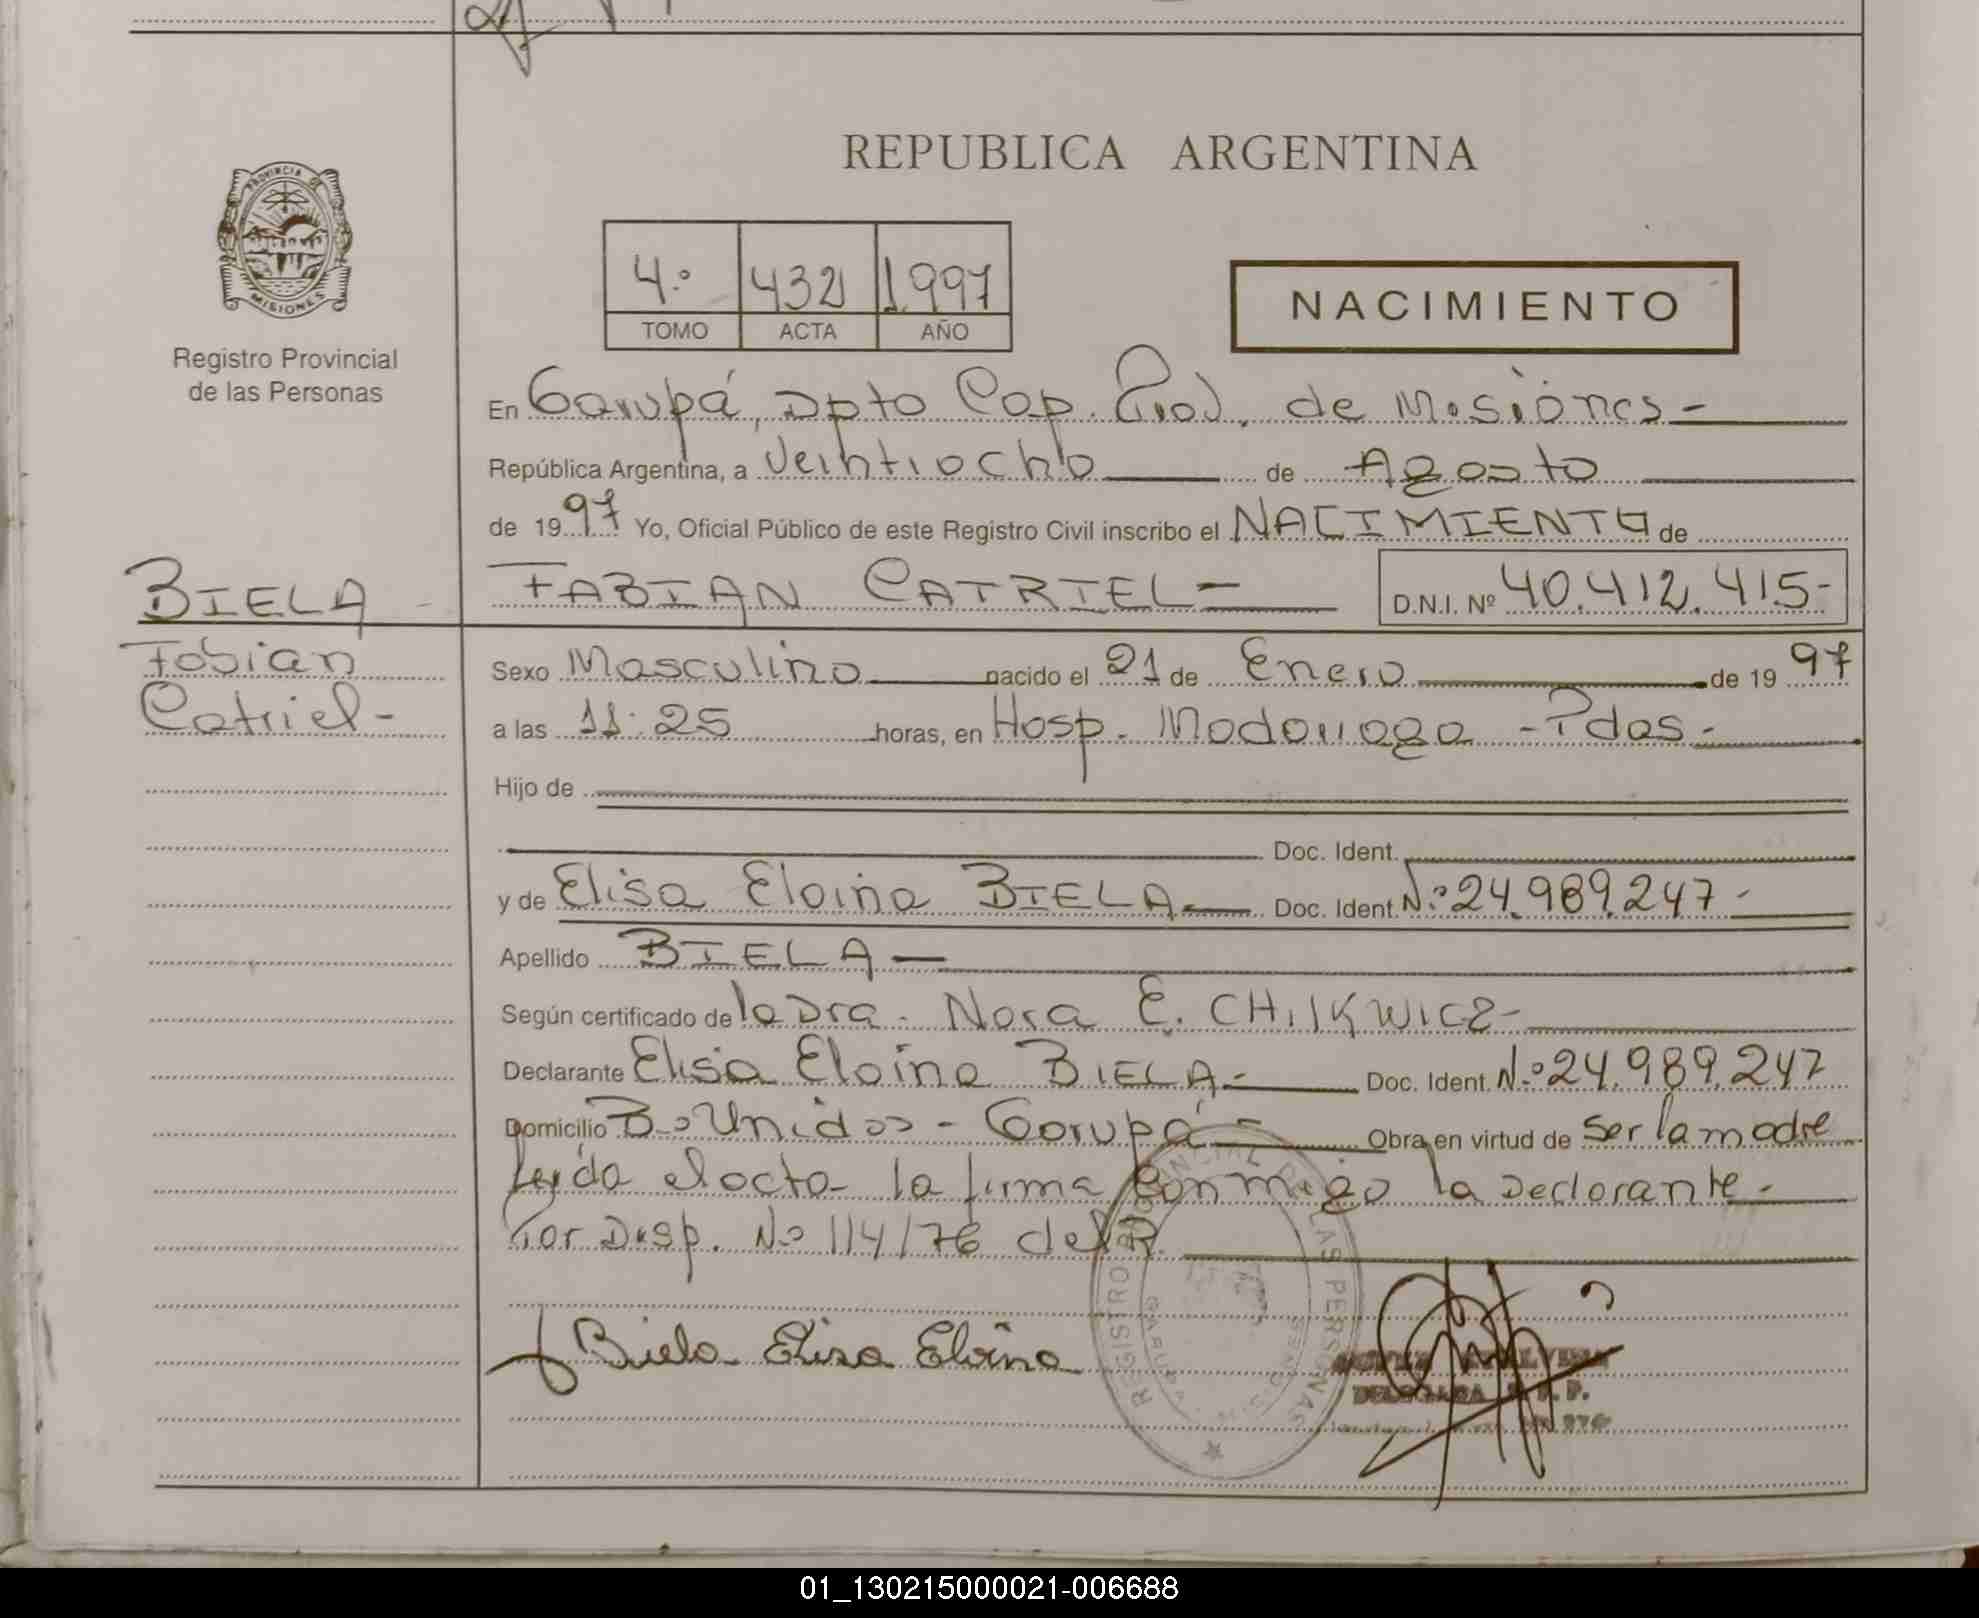 REPUBLICA ARGENTINA
PROVINCIA DE MISIONES
Registro Provincial
de las Personas
4.º 432 1.997
TOMO ACTA AÑO
NACIMIENTO
En Garupá, Dpto Cap. Prov. de Misiones-
República Argentina, a Veintiocho de Agosto
de 1997 Yo, Oficial Público de este Registro Civil inscribo el NACIMIENTO de
BIELA - FABIAN CATRIEL- D.N.I. Nº 40.412.415-
Fabian
Catriel-
Sexo Masculino nacido el 21 de Enero de 1997
a las 11:25 horas, en Hosp. Madariaga - Pdas-
Hijo de
Doc. Ident.
y de Elisa Eloina BIELA- Doc. Ident. Nº 24.989.247-
Apellido BIELA-
Según certificado de la Dra. Nora E. CHilKwicz-
Declarante Elisa Eloina BIELA- Doc. Ident. Nº 24.989.247
Domicilio Bº Unidos - Garupá- Obra en virtud de ser la madre
Leída el acta la firma conmigo la Declarante-
Por Disp. Nº 114/76 del R.
Biela Elisa Eloina
REGISTRO PROVINCIAL DE LAS PERSONAS
DELEGADA R. P. P.
01_130215000021-006688